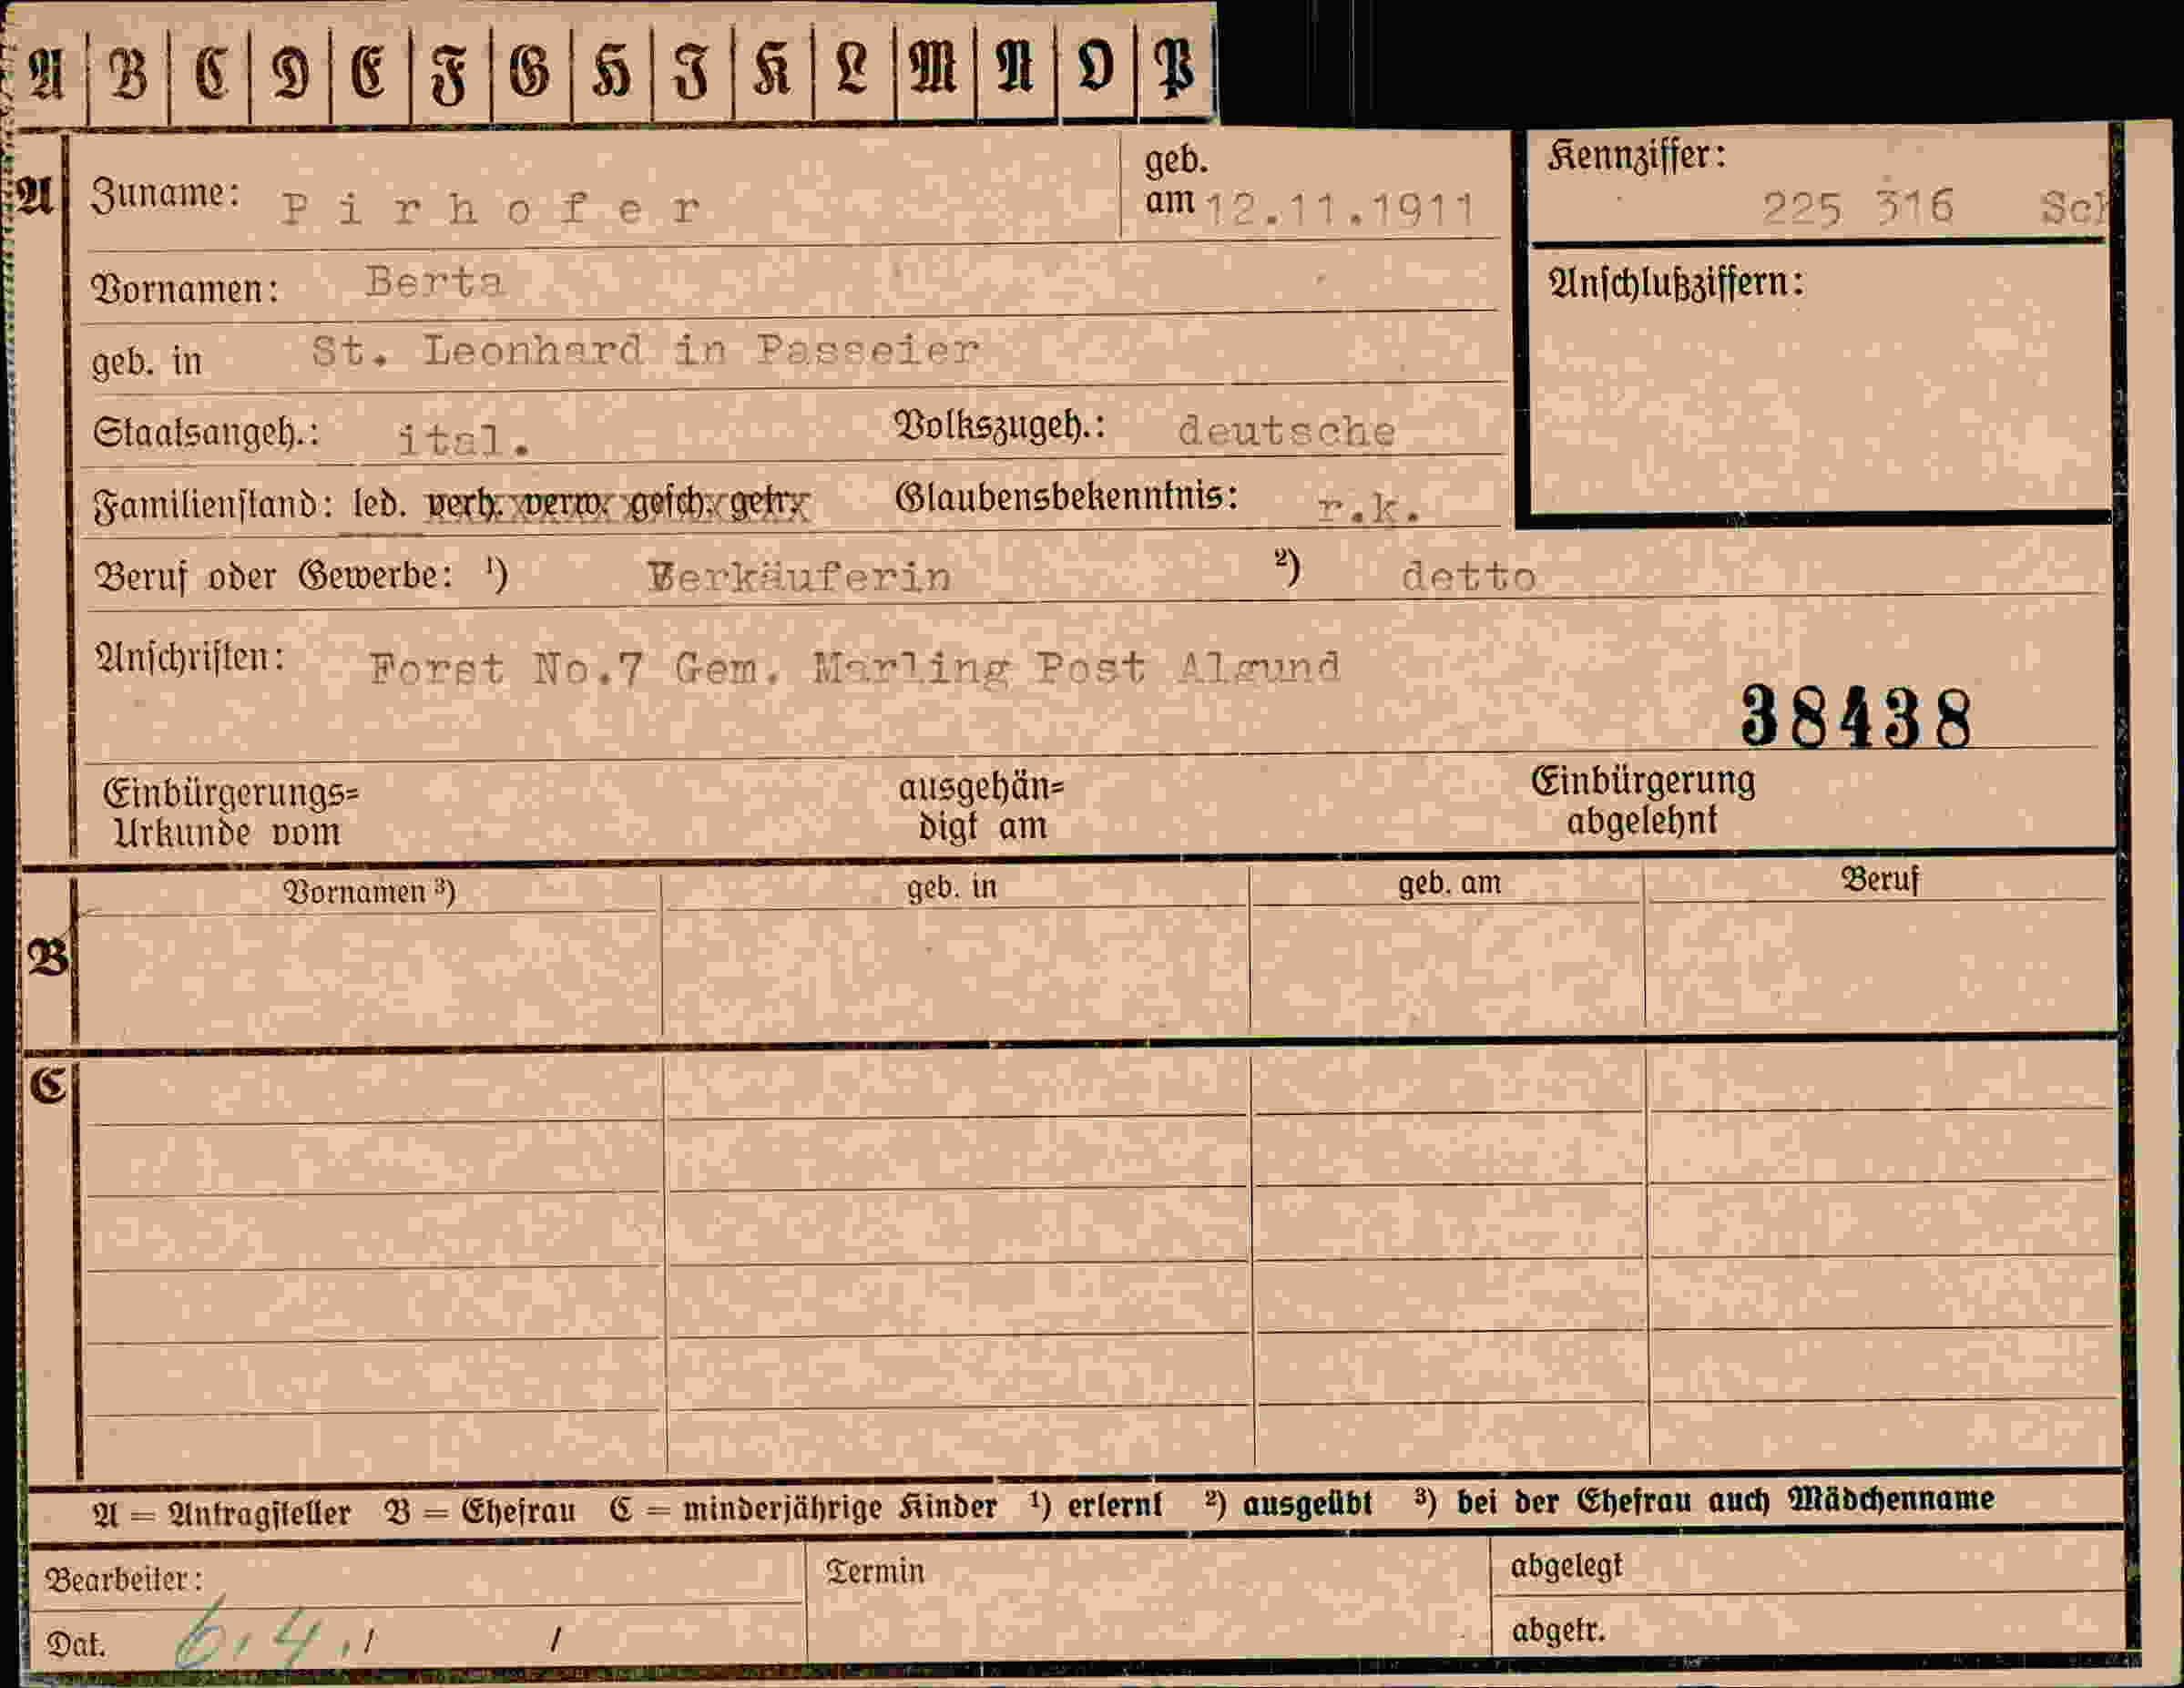 A B C D E F G H I K L M N O P
A Zuname: Pirhofer geb. am 12.11.1911 Kennziffer: 225 316 Sch
Vornamen: Berta Anschlußziffern:
geb. in St. Leonhard in Passeier
Staatsangeh.: ital. Volkszugeh.: deutsche
Familienstand: led. verh. verw. gesch. getr. Glaubensbekenntnis: r.k.
Beruf oder Gewerbe: 1) Verkäuferin 2) detto
Anschriften: Forst No.7 Gem. Marling Post Algund
38438
Einbürgerungs= ausgehän= Einbürgerung
Urkunde vom digt am abgelehnt
Vornamen 3) geb. in geb. am Beruf
B
C
A = Antragsteller B = Ehefrau C = minderjährige Kinder 1) erlernt 2) ausgeübt 3) bei der Ehefrau auch Mädchenname
Bearbeiter: Termin abgelegt
Dat. 6.4./ / abgetr.